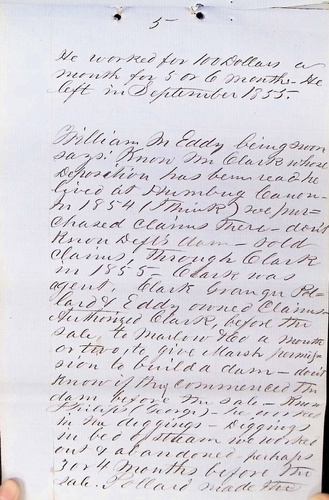 5-
He worked for 100 Dollars a
month for 5 or 6 months - He
left in September 1855.
William M Eddy being sworn
says: Know Mr Clark whose
Deposition has been read he
lived at Humbug Canon-
In 1854 (I think) we pur-
chased claims there - don't
Know Deft's dam - sold
claims, through Clark
in 1855 - Clark was
agent. Clark Granger
& Eddy owned Claims-
Authorized Clark, before the
sale, to Marlow &Co a month
or two, to give Marsh permis-
sion to build a dam - don't
Know if they commenced the
dam before the sale - Know
Philips (George) - he worked
in the diggings - Diggings
in bed of stream we worked
out & abandoned perhaps
3 or 4 months before the
sale. Pollard made the